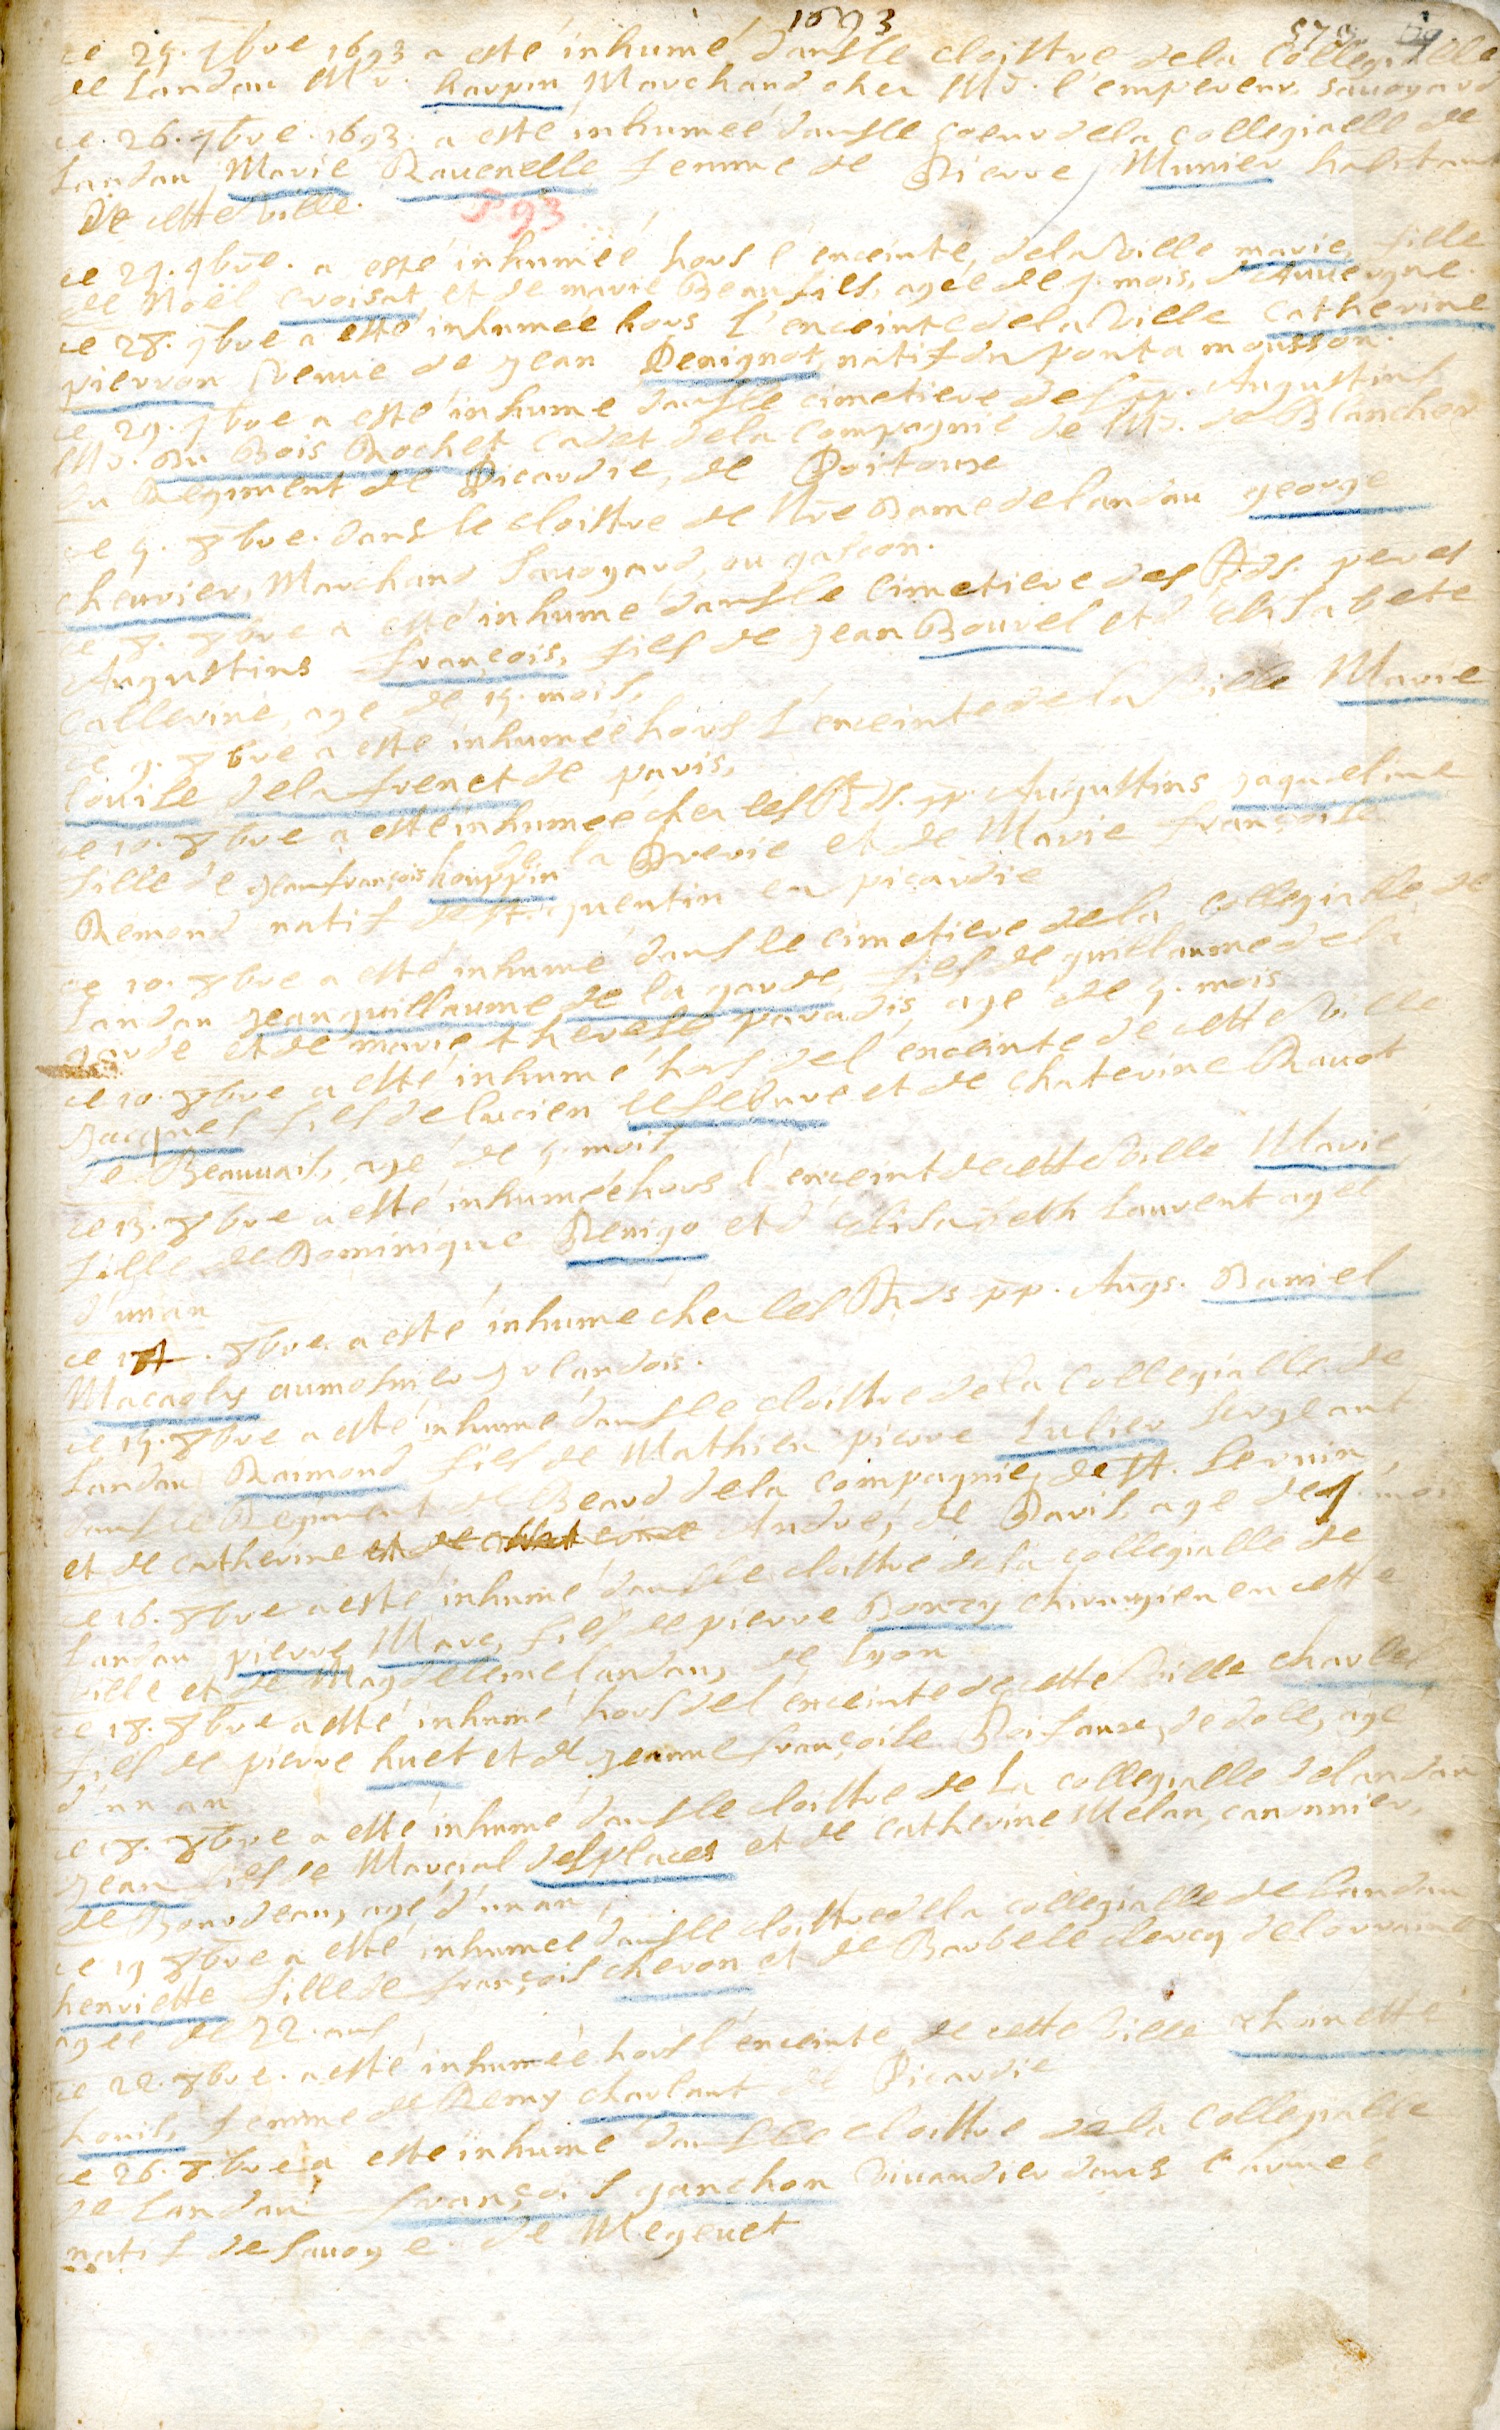 1693
ce 25. 7bre 1693 a esté inhumé dans le cloistre de la Collegialle
de Landau Mr. harpin Marchand chez Mr. l'empereur savoyard
ce. 26. 7bre. 1693. a esté inhumeé dans le coeur de la collegialle de
Landau Marie Ravenelle femme de Pierre Munier habitant
De cette ville.
93
ce 27. 7bre. a esté inhumeé hors l'enceinte, de la Ville marie fille
de Noël Croisat et de marie Beaufils, ageé de 7. mois, d'Auvergne.
ce 28. 7bre a esté inhumeé hors l'enceinte de la Ville Catherine
pierron Venue de Jean Denignot, natif du pont a mousson.
ce 29. 7bre a esté inhumé dans le cimetiere des pp. Augustins
Mr. Du Bois Rochet Cadet de la Compagnie de Mr. de Blancher
au Regiment de Picardie, de Poitouze
ce 5. 8bre. dans le cloistre de Nre Dame de landau george
cheuvier, Marchand Savoyard, ou gascon.
ce 8. 8bre a esté inhumé dans le Cimetiere des Rds. peres
Augustins françois, fils de Jean Bourel et d'elisabete
Callerine, agé de 15. mois.
ce 9. 8bre a esté inhumeé hors l'enceinte de la Ville Marie
Louise de la frenet de paris,
ce 10. 8bre a esté inhumeé chez les Rds. pp. Augustins Jaqueline
fille de Jean françois houppin de la Brerie et de Marie françoise
Remond natif de st. quentin en picardie
ce 10. 8bre a esté inhumé dans le cimetiere de la Collegialle de
Landau Jean guillaume de la garde, fils de guillaume de la
garde et de marie therese paradis agé de 5. mois
ce 10. 8bre a esté inhumé hors de l'enceinte de cette ville
Jacques fils de lucien lefebure et de Chaterine Ravot
de Beauvais, agé de 5 mois
ce 13. 8bre a esté inhumeé hors l'enceint de cette Ville Marie
fille de Dominique Benigo et d'elisabeth Laurent ageé
d'un an
ce 14. 8bre. a esté inhumé chez les Rds pp. Augs. Daniel
Macagly aumosnier Jrlandois.
ce 15. 8bre a esté inhumé dans le cloistre de la Collegialle de
Landau Raimond fils de Mathieu pierre Lucier sergeant
dans le Regiment de Beard de la compagnie de St. Sernin,
et de Catherine et de Catherine Andre, de Paris, agé de 7. mois
ce 16. 8bre a esté inhumé dans le cloistre de la collegialle de
Landau pierre Marc, fils de pierre Bonzy chirurgien en cette
Ville et de Magdeleine Landau, de Lyon
ce 18. 8bre a esté inhumé hors de l'enceinte de cette Ville charles
fils de pierre huet et de Jeanne françoise Boisaure, de dole, agé
d'un an
ce 18. 8bre a esté inhumé dans le cloistre de la collegialle de landau
Jean fils de Marcial desplaces et de Catherine Melan, canonnier,
de Bourdeau, agé d'un an,
ce 19 8bre a esté inhumeé dans le cloistre de la collegialle de Landau
henriette fille de françois cheron et de Barbele clercq de lorraine
ageé de 22. ans
ce 22. 8bre. a esté inhumeé hors l'enceinte de cette Ville thonette
houis, femme de Remy charlant de Picardie
ce 26. 8bre a esté inhumé dans le cloistre de la Collegialle
de Landau françois ganchon Vivandier dans l'armeé
natif de Savoye. de Megevet